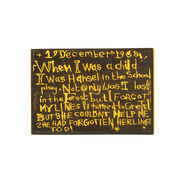 19 December 1988,
When I was a child
I was Hansel in the School
play. Not only was I lost
in the Forest but I FORGOT
MY LINES. I turned to Gretel
BUT SHE COULDN'T HELP ME
SHE HAD FORGOTTEN HER LINES
TOO!